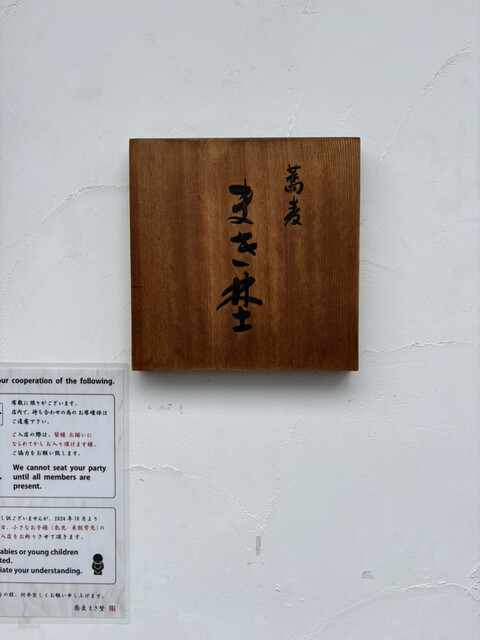 蕎麦
まき埜
our cooperation of the following.
席数に限りがございます。
店内で、待ち合わせの為のお席確保は
ご遠慮下さい。
ご入店の際は、皆様 お揃いに
なられてから お入り頂けます様、
ご協力をお願い致します。
We cannot seat your party
until all members are
present.
し訳ございませんが、2024年10月より
日、小さなお子様(乳児・未就学児)の
入店をお断りさせて頂きます。
abies or young children
ted.
iate your understanding.
の程、何卒宜しくお願い申し上げます。
蕎麦 まき埜